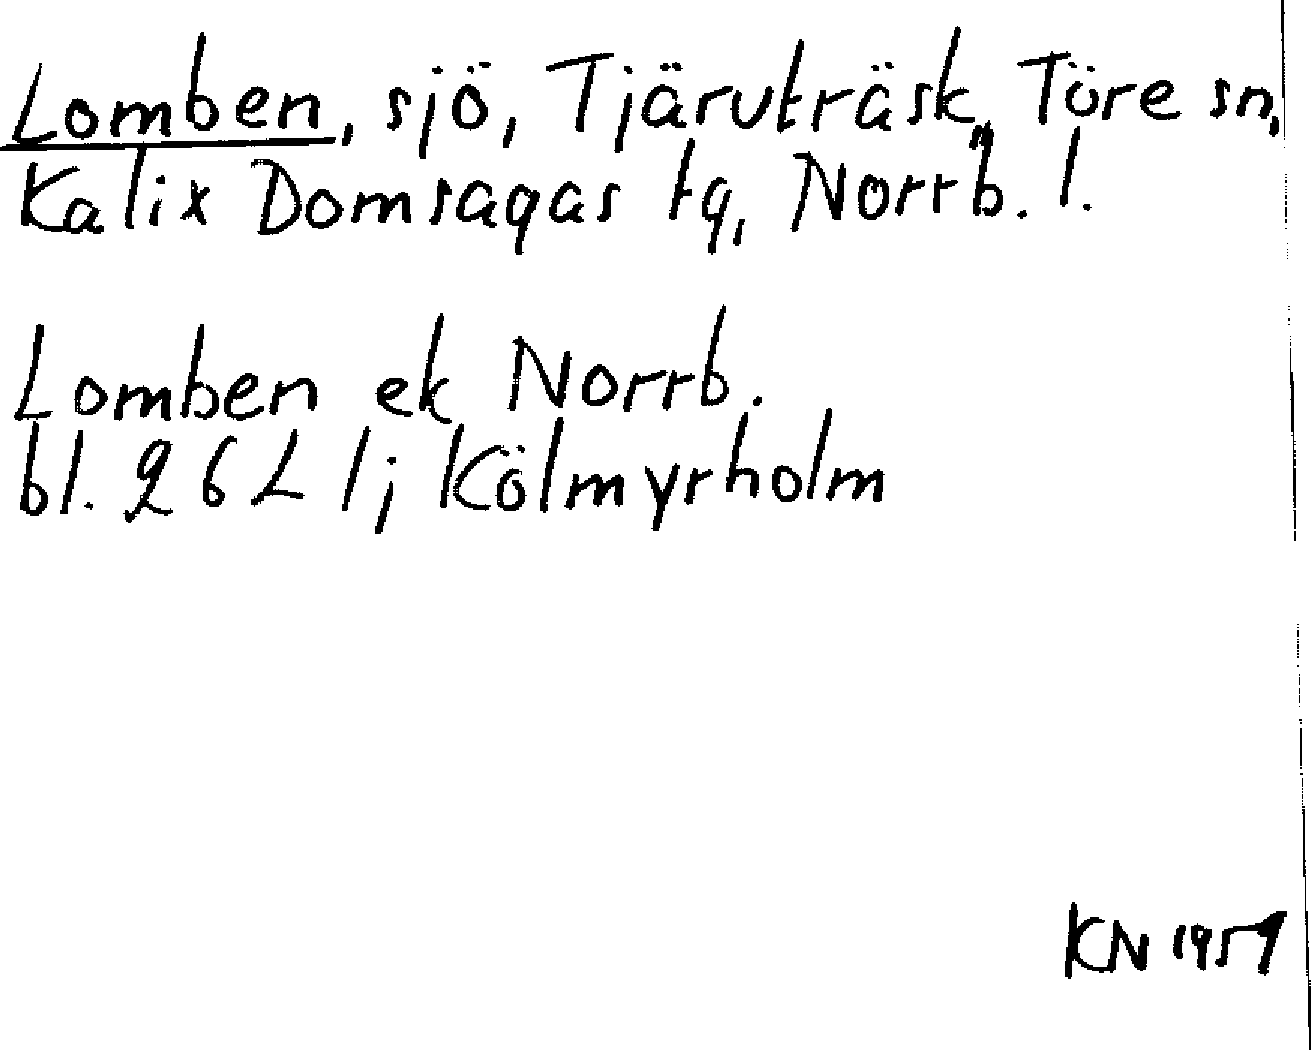 Lomben, sjö, Tjäruträsk, Töre sn,
Kalix Domsagas tg, Norrb. l.
Lomben ek Norrb.
bl. 262 1; Kölmyrholm
KN 1951